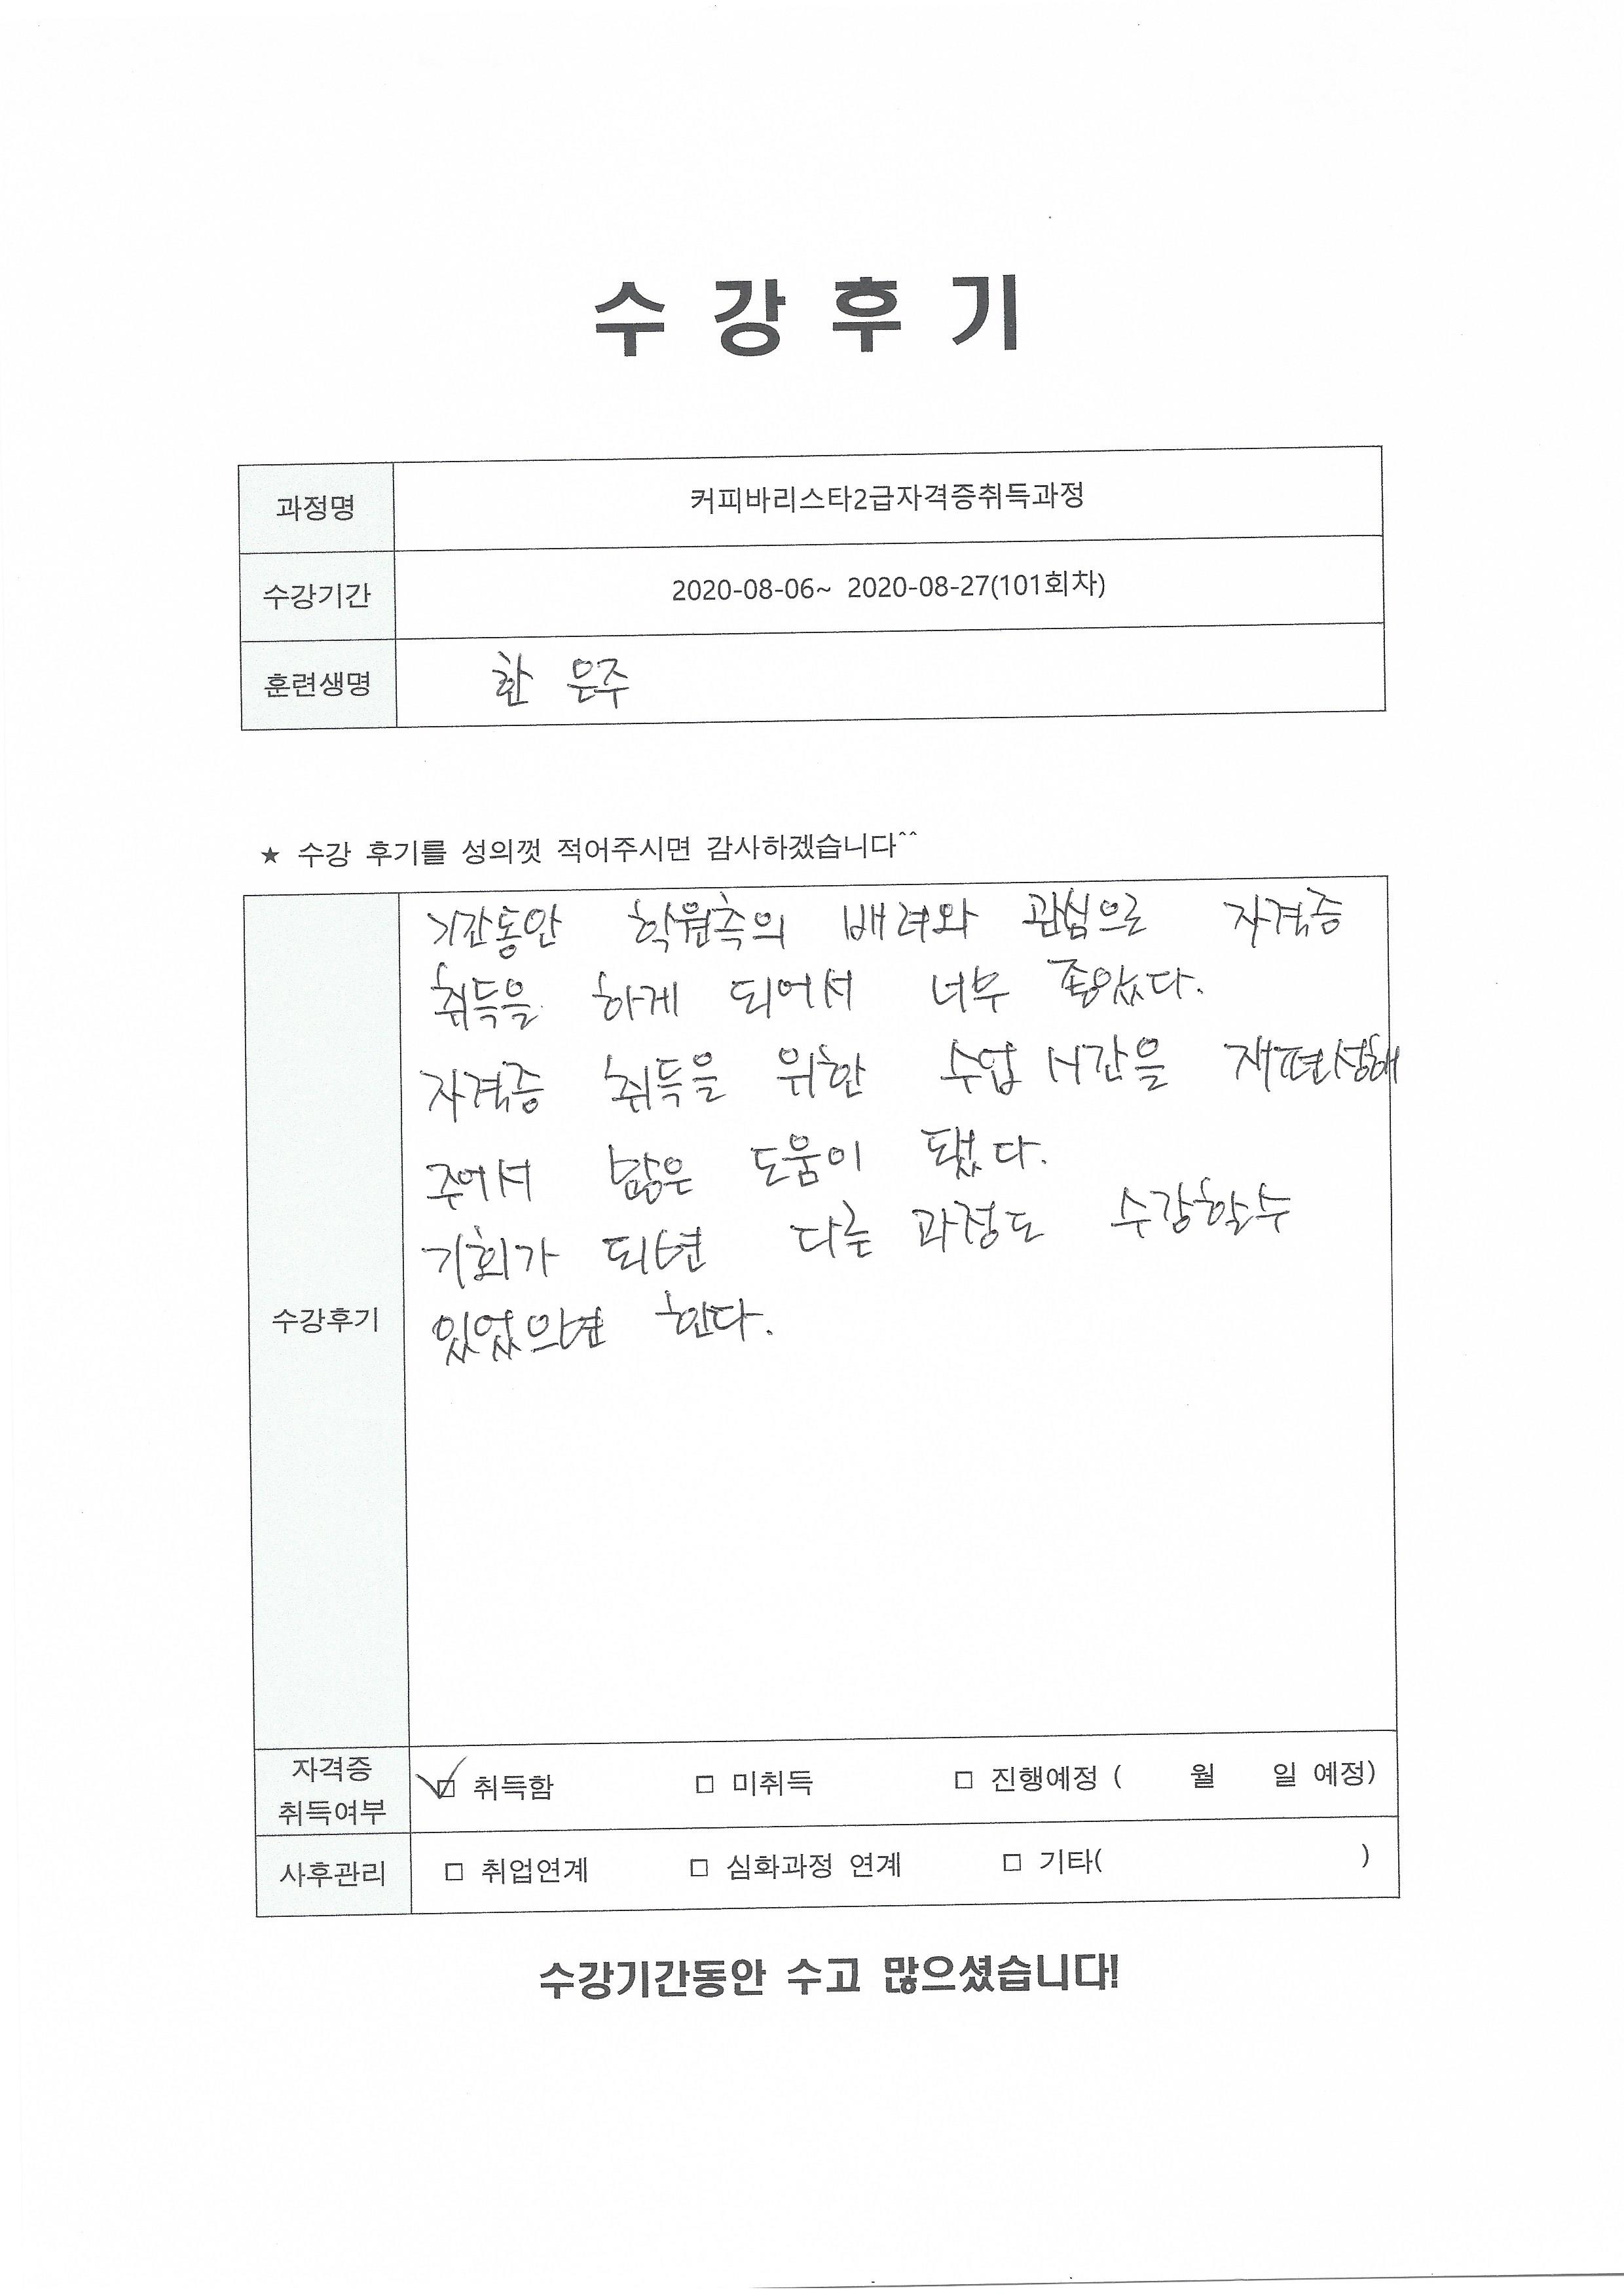 수강후기
과정명 커피바리스타2급자격증취득과정
수강기간 2020-08-06~ 2020-08-27(101회차)
훈련생명 한 은주
★ 수강 후기를 성의껏 적어주시면 감사하겠습니다^^
기간동안 학원측의 배려와 관심으로 자격증
취득을 하게 되어서 너무 좋았다.
자격증 취득을 위한 수업 시간을 재편성해
주어서 많은 도움이 됐다.
기회가 되면 다른 과정도 수강할수
수강후기
있었으면 한다.
자격증
취득여부
☑ 취득함 □ 미취득 □ 진행예정 ( 월 일 예정)
사후관리 □ 취업연계 □ 심화과정 연계 □ 기타( )
수강기간동안 수고 많으셨습니다!